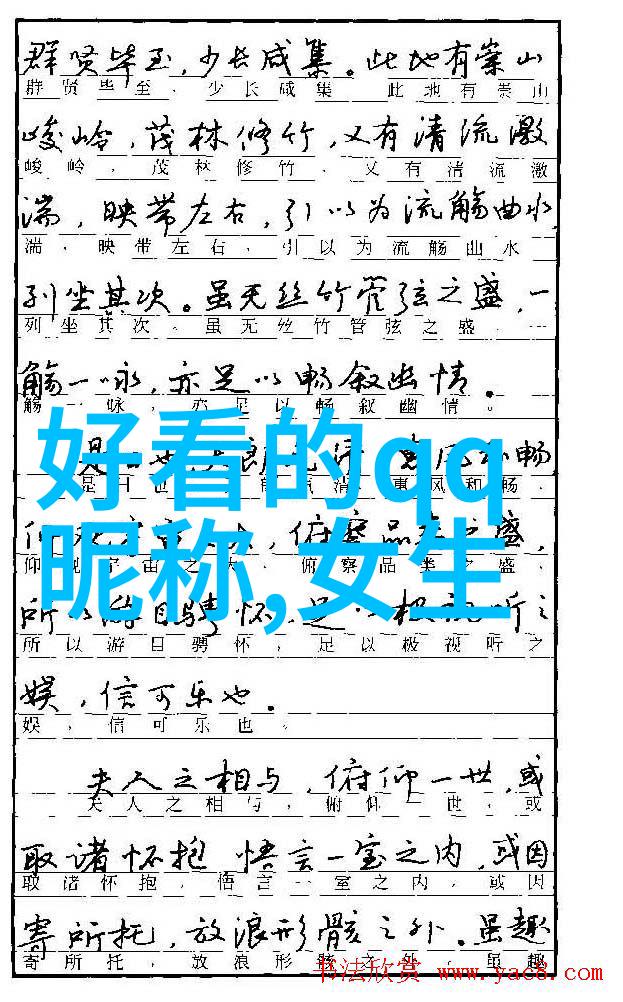 群贤毕至,少长咸集。此地有崇山
群贤毕至、少长咸集。此地有崇山
峻岭,茂林修竹,又有清流激
峻岭,茂林修竹、又有清流激
湍,映带左右,引以为流觞曲水,
湍、映带左右,引以为流觞曲水
列坐其次。虽无丝竹管弦之盛,一
列坐其次。虽无丝竹管弦之盛,一
觞一咏,亦足以畅叙幽情。
觞一咏,亦足以畅叙幽情。
好看的qq
昵称,女生
是 也 惠风和畅
是 也 清 惠风和畅、
仰 俯察品 之盛,
仰 宙之 、俯察品类之盛、
所以游目骋怀,足以极视听之
所以游目骋怀,足以极视听之
娱,信可乐也。
娱,信可乐也。
夫人之相与,俯仰一世,或
夫人之相与,俯仰一世,或
取诸怀抱 悟言一室之内,或因
取诸怀抱,悟言一室之内,或因
寄所托,放浪形骸之外。虽趣
寄所托,放浪形骸之外。虽趣
书法欣赏 www.yac8.com